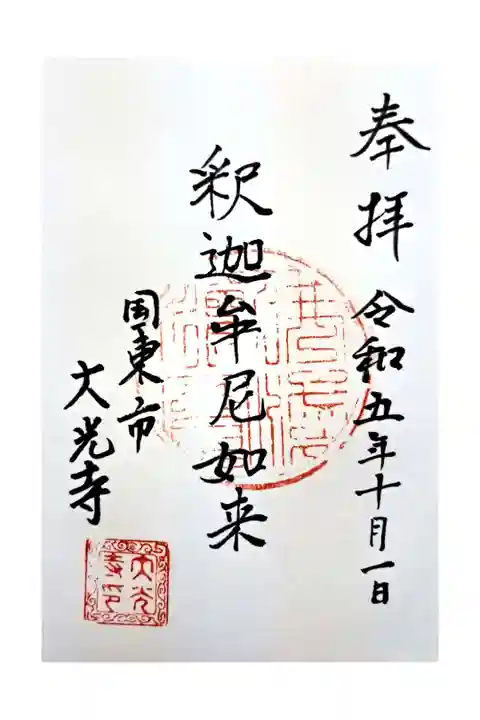 奉拝 令和五年十月一日
釈迦牟尼如来
国東市
大光寺
大光寺印